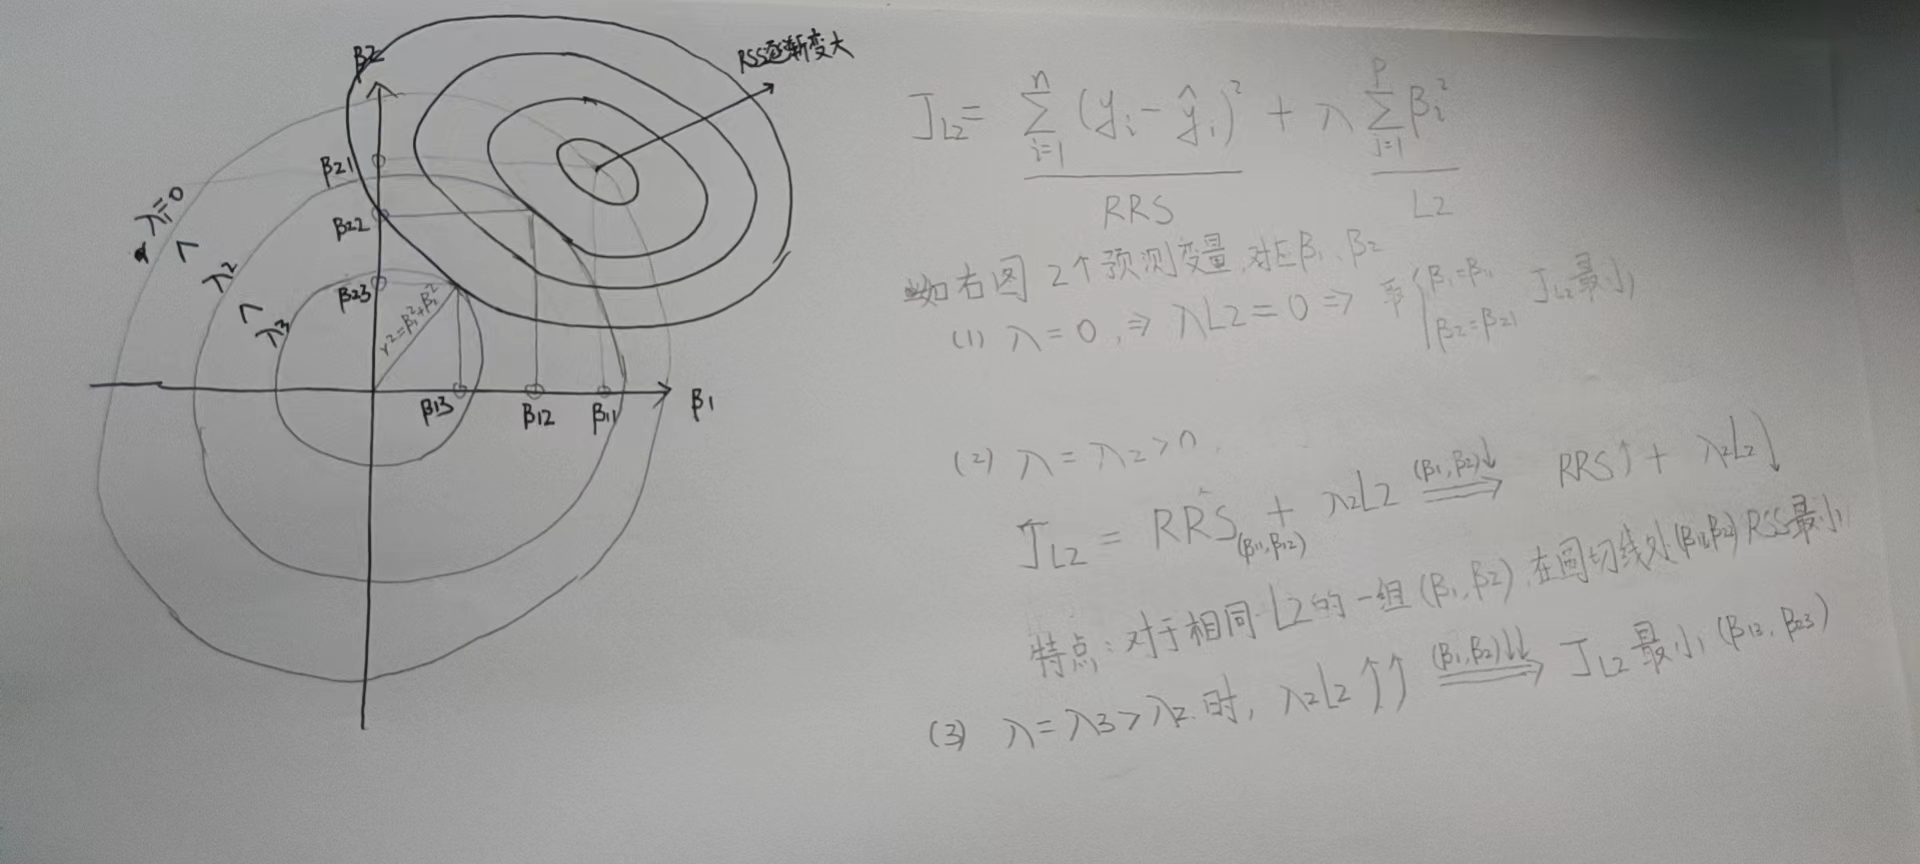 β2
RSS逐渐变大
β21
λ1=0
<
β22
λ2
<
β23
λ3
r²=β1²+β2²
β13
β12
β11
β1
J_L2 = Σ_{i=1}^{n} (y_i - ŷ_i)² + λ Σ_{j=1}^{p} β_i²
RRS
L2
如右图 2个预测变量,对应β1、β2
(1) λ=0, ⇒ λL2=0 ⇒ 取{β1=β11 β2=β21 J_L2最小
(2) λ=λ2>0.
J_L2 = RRS(β11,β12) + λ2L2 (β1,β2)↓ ⟹ RRS↑ + λ2L2↓
特点:对于相同L2的一组(β1,β2),在圆切线处(β12,β22)RSS最小
(3) λ=λ3>λ2时, λ2L2↑↑ (β1,β2)↓↓ ⟹ J_L2最小(β13,β23)